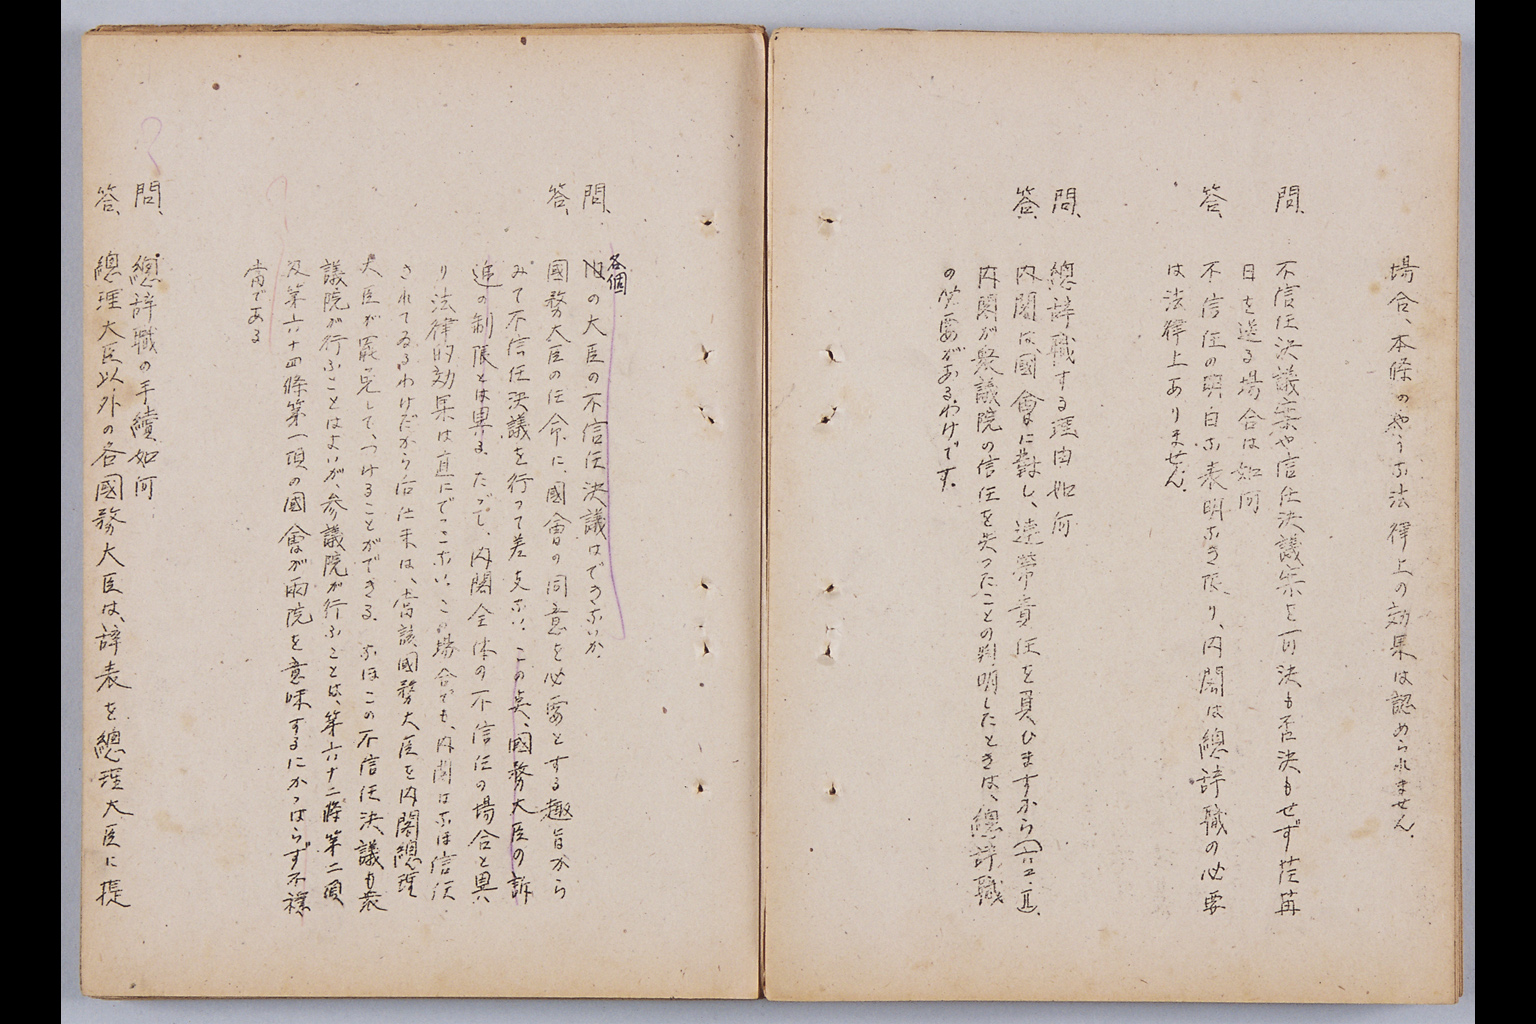 場合、本條のやうな法律上の効果は認められません。
問、不信任決議案や信任決議案を可決も否決もせず荏苒
日を送る場合は如何
答、不信任の明白な表明なき限り、内閣は總辞職の必要
は法律上ありません。
問、總辞職する理由如何
答、内閣は國會に對し、連帯責任を負ひますから(六二・Ⅱ)、
内閣が衆議院の信任を失つたことの判明したときは、總辞職
の必要があるわけです。
問、各個の大臣の不信任決議はできないか。
答、國務大臣の任命に、國會の同意を必要とする趣旨から
みて不信任決議を行つて差支ない。この点、國務大臣の訴
追の制限とは異る。たゞし、内閣全体の不信任の場合と異
り法律的効果は直にでゝこない。この場合でも、内閣はなほ信任
されてゐるわけだから后仕末は、當該國務大臣を内閣總理
大臣が罷免して、つけることができる。なほこの不信任決議も衆
議院が行ふことはよいが、参議院が行ふことは、第六十二條第二項
及第六十四條第一項の國會が兩院を意味するにかゝはらず不穩
當である
問、總辞職の手續如何
答、總理大臣以外の各國務大臣は、辞表を總理大臣に提